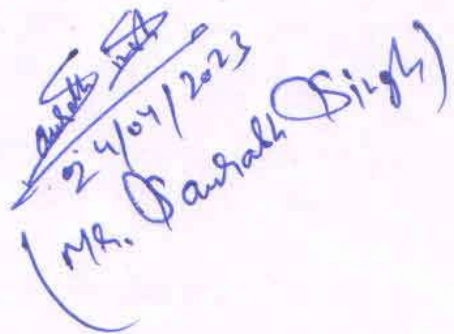 24/04/2023
(Mr. Saurabh Singh)